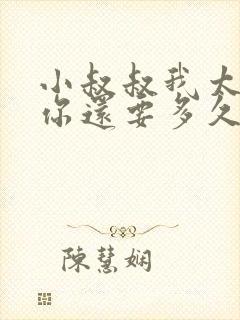 小叔叔我太
你還要多久
陳慧嫻